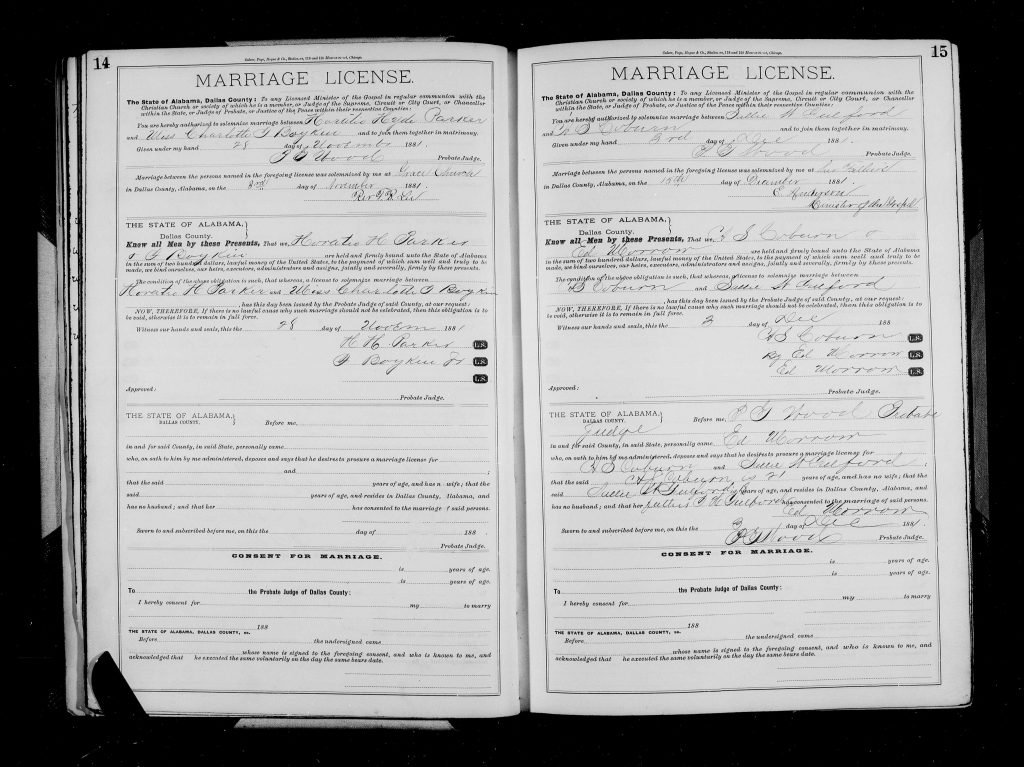 14
MARRIAGE LICENSE.
The State of Alabama, Dallas County: To any Licensed Minister of the Gospel in regular communion with the
Christian Church or society of which he is a member, or Judge of the Supreme, Circuit or City Court, or Chancellor
within the State, or Judge of Probate, or Justice of the Peace within their respective Counties:
You are hereby authorized to solemnize marriage between Horatio Hyde Parker
and Miss Charlotte T Boykin and to join them together in matrimony.
Given under my hand 28 day of November 1881.
P G Wood Probate Judge.
Marriage between the persons named in the foregoing license was solemnized by me at Grace Church
in Dallas County, Alabama, on the 3rd day of November 1881.
Rev F. R. Lee
THE STATE OF ALABAMA,
Dallas County.
Know all Men by these Presents, That we, Horatio H Parker
& Boykin are held and firmly bound unto the State of Alabama
in the sum of two hundred dollars, lawful money of the United States, to the payment of which sum well and truly to be
made, we bind ourselves, our heirs, executors, administrators and assigns, jointly and severally, firmly by these presents.
The condition of the above obligation is such, that whereas, a license to solemnize marriage between
Horatio H Parker and Miss Charlotte T Boykin
, has this day been issued by the Probate Judge of said County, at our request:
NOW, THEREFORE, If there is no lawful cause why such marriage should not be celebrated, then this obligation is to
be void, otherwise it is to remain in full force.
Witness our hands and seals, this the 28 day of Novem 1881
H H Parker L.S.
Boykin Jr L.S.
L.S.
Approved:
Probate Judge.
THE STATE OF ALABAMA,
DALLAS COUNTY.
Before me,
in and for said County, in said State, personally came
who, on oath to him by me administered, deposes and says that he desires to procure a marriage license for
and ;
that the said years of age, and has no wife; that the
said years of age, and resides in Dallas County, Alabama, and
has no husband; and that her has consented to the marriage of said persons.
Sworn to and subscribed before me, on this the day of 188 .
Probate Judge.
CONSENT FOR MARRIAGE.
is years of age.
is years of age.
To the Probate Judge of Dallas County:
I hereby consent for my to marry
188
THE STATE OF ALABAMA, DALLAS COUNTY, ss.
Before the undersigned came
whose name is signed to the foregoing consent, and who is known to me, and
acknowledged that he executed the same voluntarily on the day the same bears date.
15
MARRIAGE LICENSE.
The State of Alabama, Dallas County: To any Licensed Minister of the Gospel in regular communion with the
Christian Church or society of which he is a member, or Judge of the Supreme, Circuit or City Court, or Chancellor
within the State, or Judge of Probate, or Justice of the Peace within their respective Counties:
You are hereby authorized to solemnize marriage between Sallie W Guilford
and S Coburn and to join them together in matrimony.
Given under my hand 3rd day of Dec 1881.
P G Wood Probate Judge.
Marriage between the persons named in the foregoing license was solemnized by me at her Fathers
in Dallas County, Alabama, on the 15th day of December 1881.
E Henderson
Minister of the Gospel
THE STATE OF ALABAMA,
Dallas County.
Know all Men by these Presents, That we, S Coburn &
Ed Morrow are held and firmly bound unto the State of Alabama
in the sum of two hundred dollars, lawful money of the United States, to the payment of which sum well and truly to be
made, we bind ourselves, our heirs, executors, administrators and assigns, jointly and severally, firmly by these presents.
The condition of the above obligation is such, that whereas, a license to solemnize marriage between
S Coburn and Sallie W Guilford
, has this day been issued by the Probate Judge of said County, at our request:
NOW, THEREFORE, If there is no lawful cause why such marriage should not be celebrated, then this obligation is to
be void, otherwise it is to remain in full force.
Witness our hands and seals, this the 2 day of Dec 188
S Coburn L.S.
By Ed Morrow L.S.
Ed Morrow L.S.
Approved:
Probate Judge.
THE STATE OF ALABAMA,
DALLAS COUNTY.
Before me, P G Wood Probate
Judge
in and for said County, in said State, personally came Ed Morrow
who, on oath to him by me administered, deposes and says that he desires to procure a marriage license for
S Coburn and Sallie W Guilford ;
that the said Coburn is 21 years of age, and has no wife; that the
said Sallie W Guilford years of age, and resides in Dallas County, Alabama, and
has no husband; and that her father Guilford has consented to the marriage of said persons.
Ed Morrow
Sworn to and subscribed before me, on this the 2 day of Dec 1881.
P G Wood Probate Judge.
CONSENT FOR MARRIAGE.
is years of age.
is years of age.
To the Probate Judge of Dallas County:
I hereby consent for my to marry
188
THE STATE OF ALABAMA, DALLAS COUNTY, ss.
Before the undersigned came
whose name is signed to the foregoing consent, and who is known to me, and
acknowledged that he executed the same voluntarily on the day the same bears date.